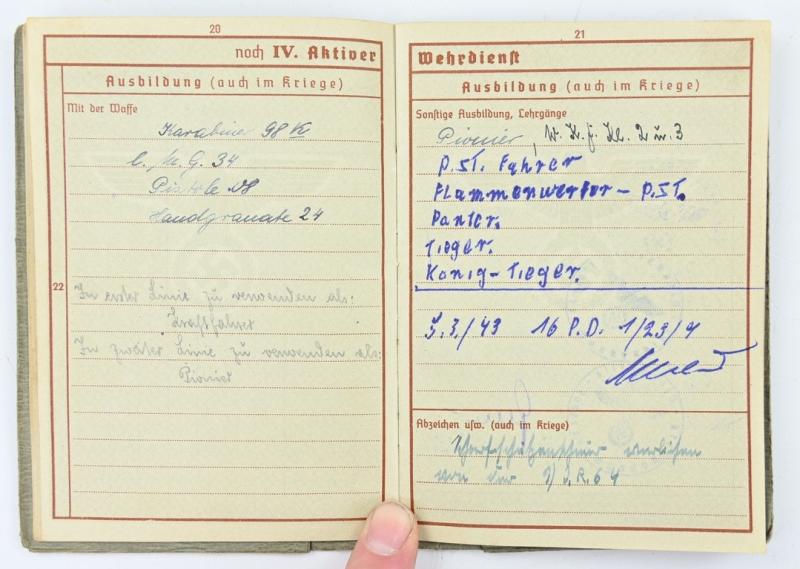 20
noch IV. Aktiver
Ausbildung (auch im Kriege)
Mit der Waffe
Karabiner 98 K
l. M. G. 34
Pistole 08
Handgranate 24
22
In erster Linie zu verwenden als:
Kraftfahrer
In zweiter Linie zu verwenden als:
Pionier
21
Wehrdienst
Ausbildung (auch im Kriege)
Sonstige Ausbildung, Lehrgänge
Pionier, W. K. f. Kl. 2 u. 3
P. ST. Fahrer
Flammenwerfer – P. ST.
Panter.
Tieger.
König – Tieger.
3.3./43 16 P.D. 1/29/4
Abzeichen usw. (auch im Kriege)
verliehen
von der J.R. 64